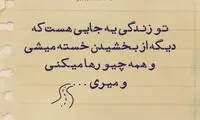 تو زندگی یه جایی هست که
دیگه از بخشیدن خسته میشی
و همه چیو رها میکنی
و میری....